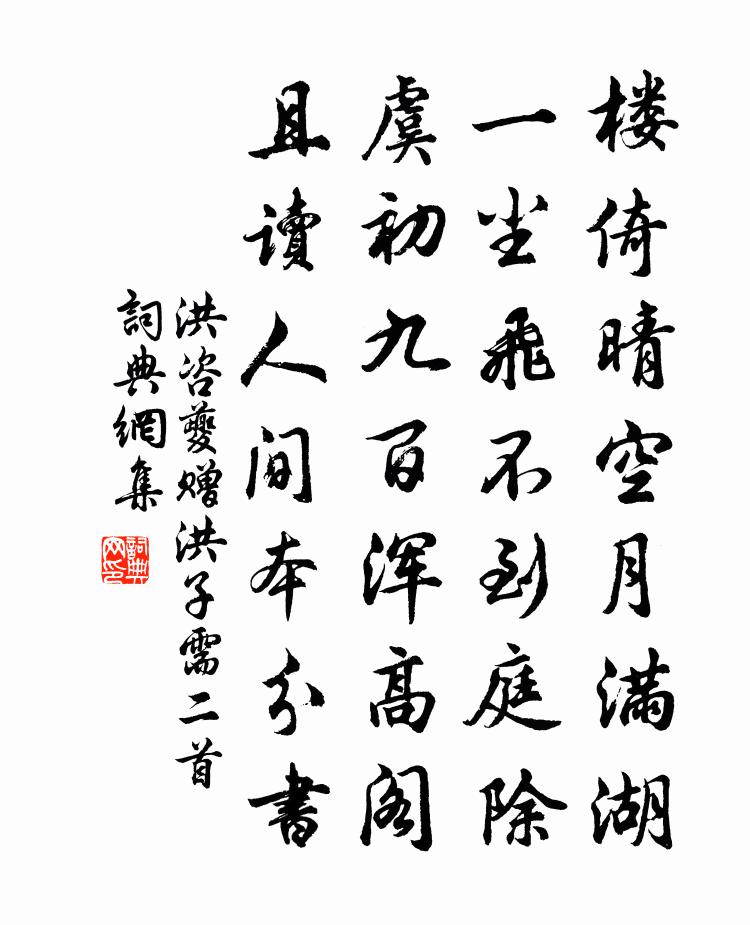 楼倚晴空月满湖
一尘飛不到庭除
虞初九百浑高阁
且讀人间本分書
洪咨夔赠洪子需二首
詞典網集
詞典网印